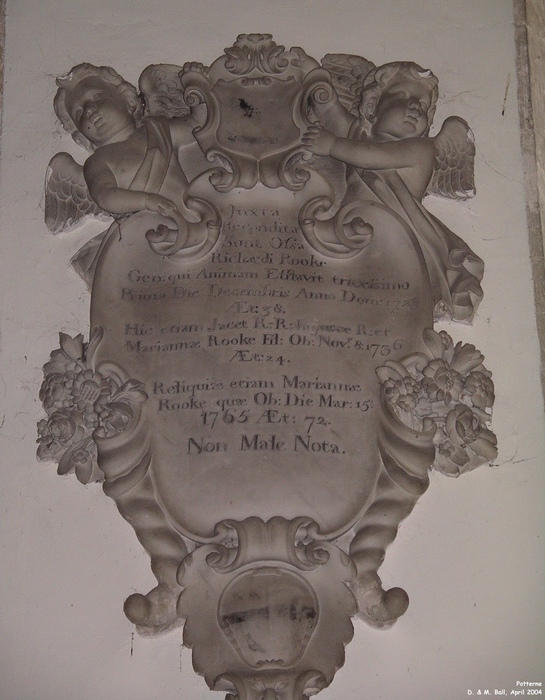 Juxta
Recondita
Sunt Ossa
Richardi Rooke
Gen: qui Animam Efflavit tricesimo
Primo Die Decembris Anno Dom:
Æt: 58.
Hic etiam Jacet R: R: R: et
Mariannæ Rooke Fil: Ob: Nov: 8: 1756
Æt: 24.
Reliquiæ etiam Mariannæ
Rooke quæ Ob: Die Mar: 15:
1765 Æt: 72.
Non Male Nota.
Potterne
D. & M. Ball, April 2004